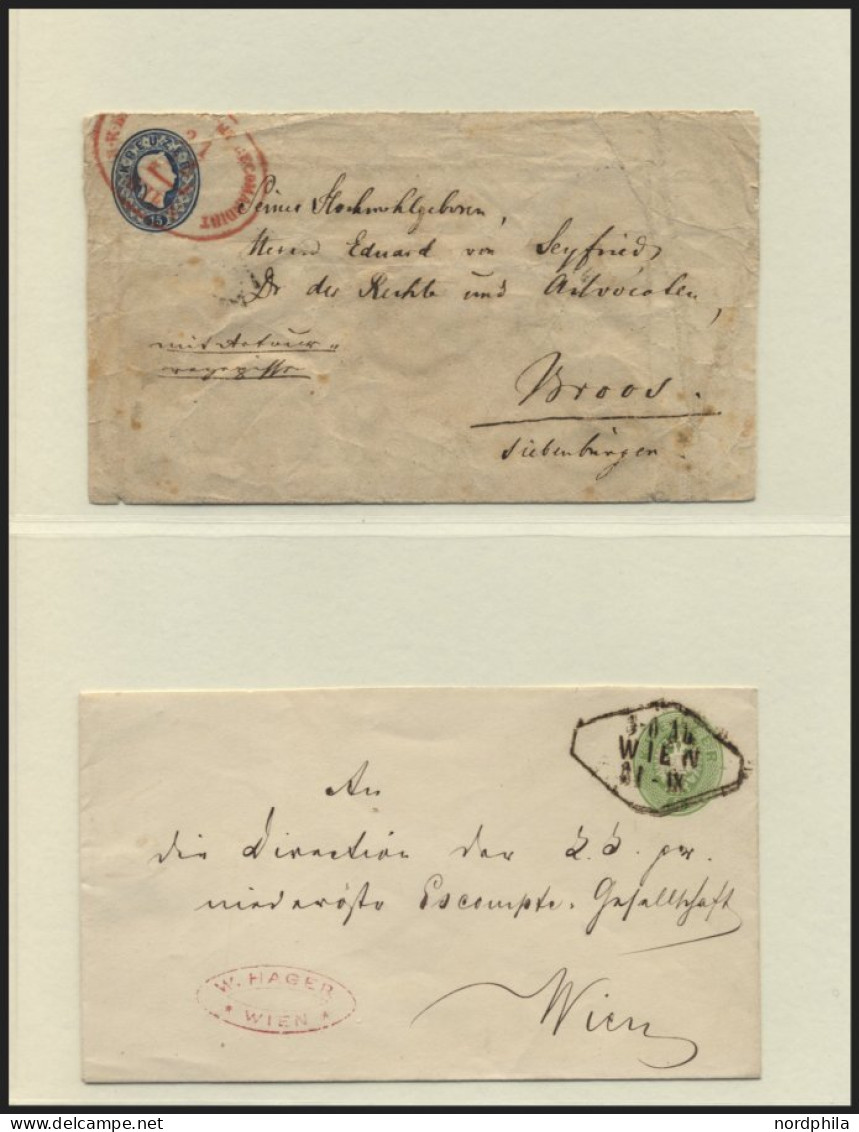 KREUZER
15
RECOMMANDIRT
Seiner Hochwohlgeboren,
Herrn Eduard von Seyfried,
Dr der Rechte und Advocaten,
mit Retour-
recepisse
Broos.
Siebenbürgen.
WIEN
IX
An
die Direction der k. k. pr.
niederöstr Escompte-Gesellschaft
W. HAGER
* WIEN *
Wien
www.delcampe.net
nordphila